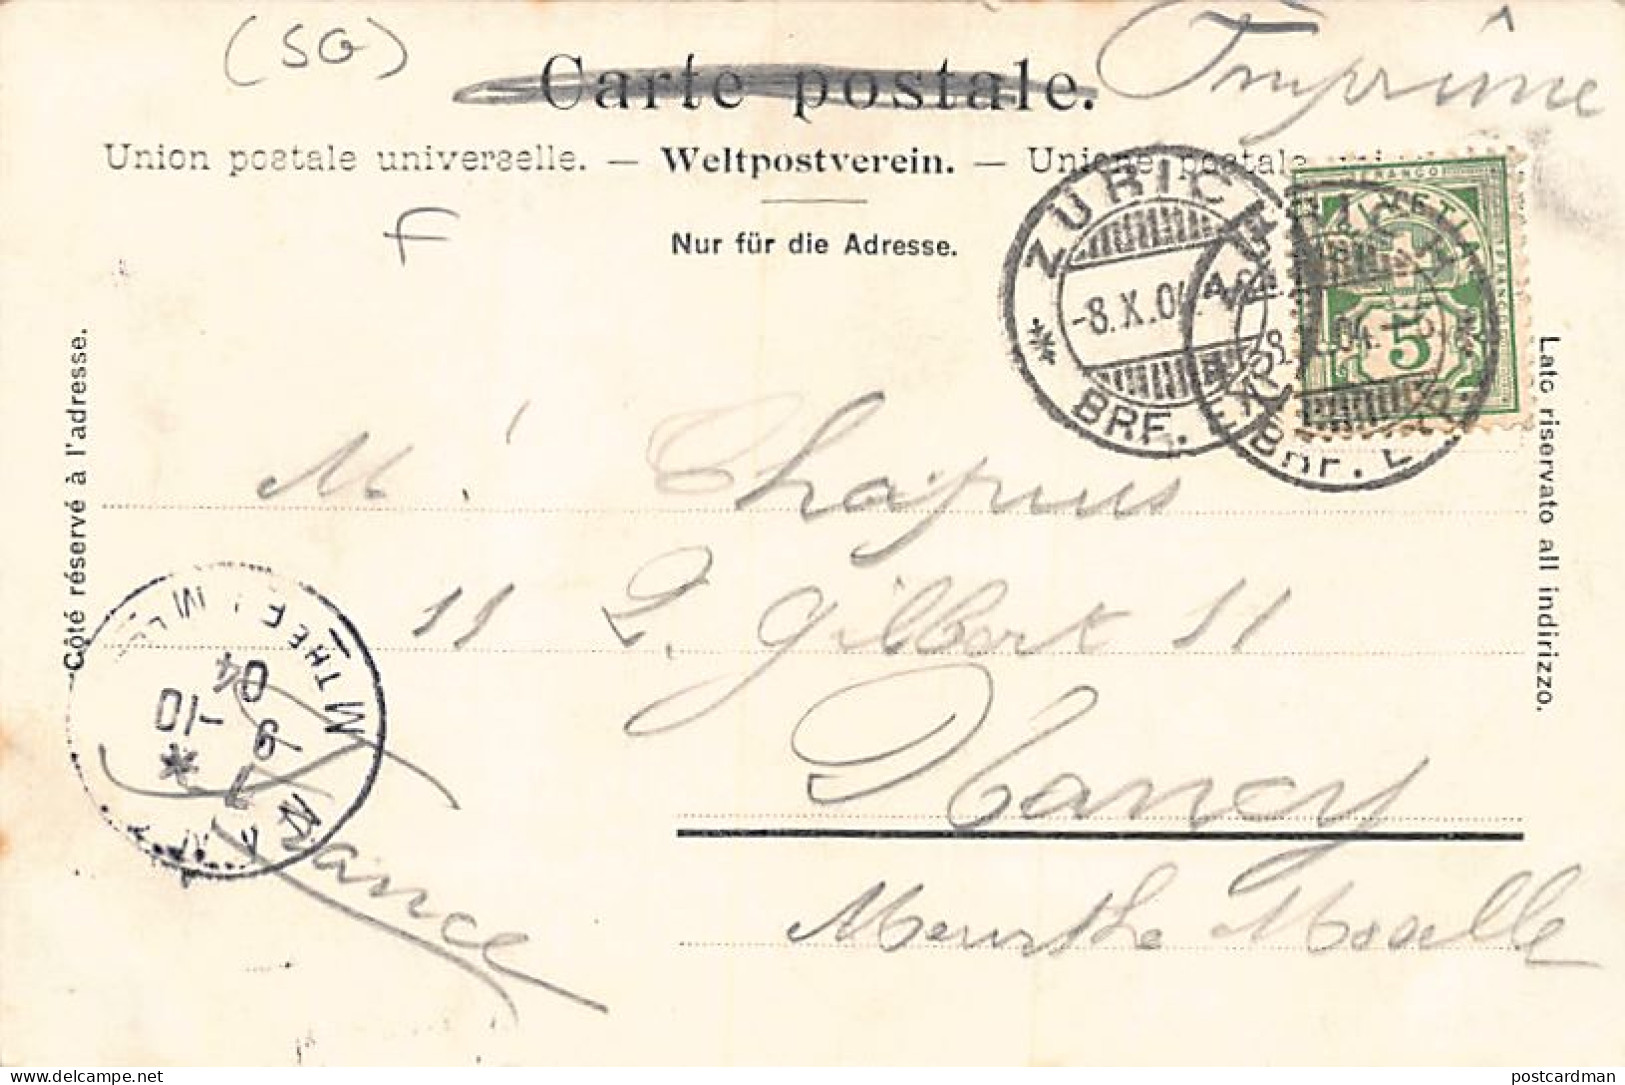 (SG)
Carte postale.
Imprimé
Union postale universelle. — Weltpostverein. — Unione postale
F
Nur für die Adresse.
ZÜRICH
-8.X.04.
BRF. EX
HELVETIA
FRANCO
5
Côté réservé à l'adresse.
Lato riservato all indirizzo.
M. Chapuis
11 R. Gilbert 11
Nancy
Meurthe Moselle
France
NANCY
MTHE ET MLLE
7
9 -10
04
delcampe.net
postcardman